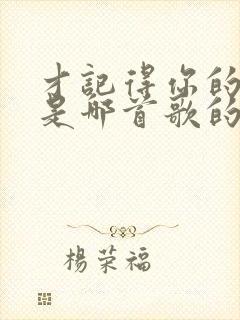 才記得你的
是那首歌的
楊荣福